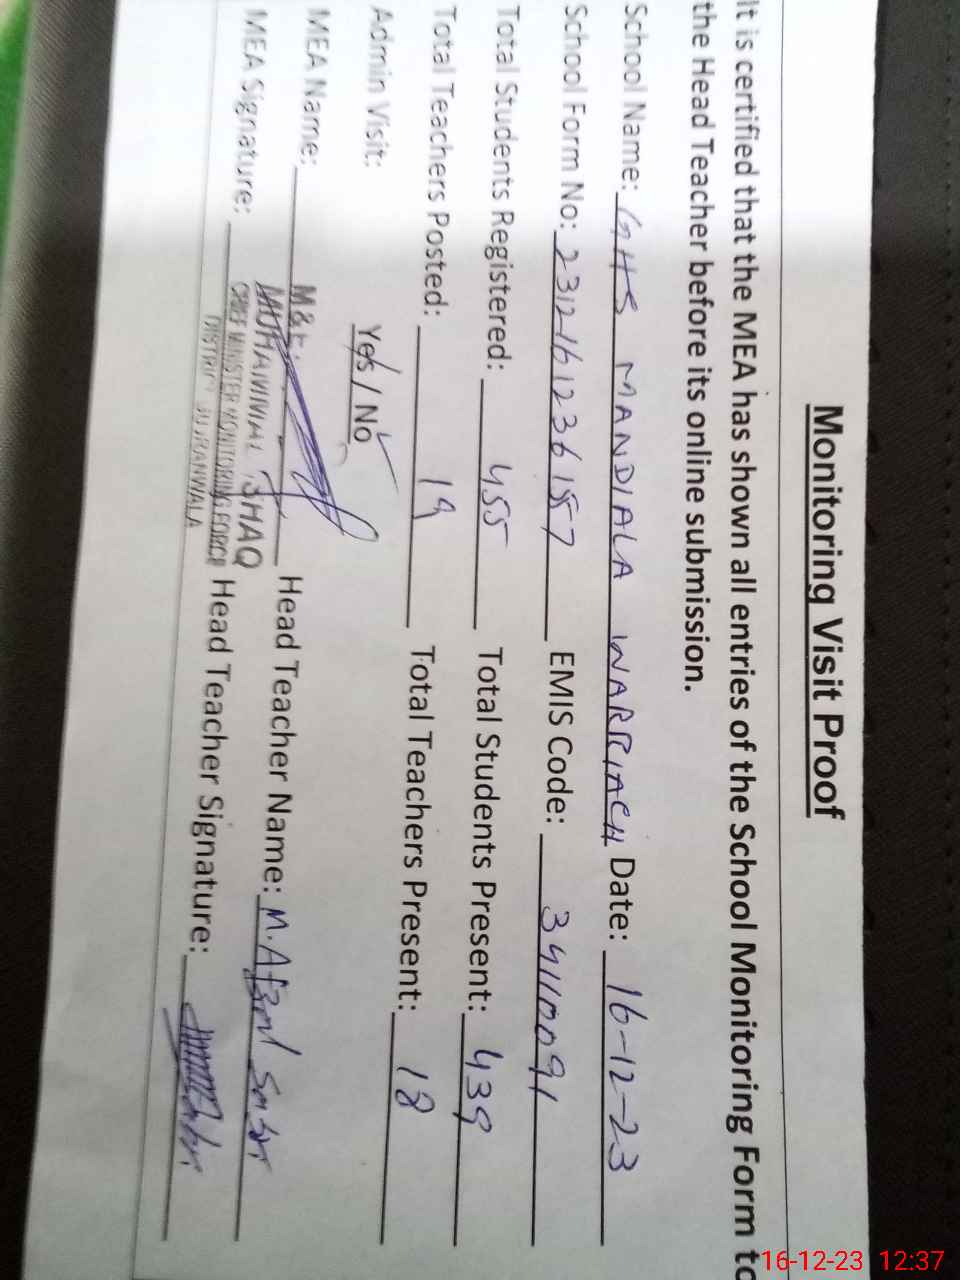 Monitoring Visit Proof
It is certified that the MEA has shown all entries of the School Monitoring Form to
the Head Teacher before its online submission.
School Name: GHS MANDIALA WARRIACH Date: 16-12-23
School Form No: 2312161236157 EMIS Code: 34110091
Total Students Registered: 455 Total Students Present: 439
Total Teachers Posted: 19 Total Teachers Present: 18
Admin Visit: Yes / No
MEA Name: M&E. Head Teacher Name: M. Afzal Sabir
MUHAMMAD ISHAQ
MEA Signature: Head Teacher Signature:
CHIEF MINISTER MONITORING FORCE
DISTRICT GUJRANWALA
16-12-23 12:37